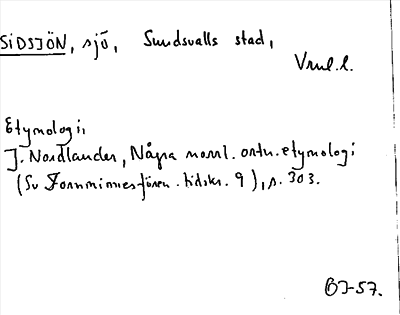 SIDSJÖN, sjö, Sundsvalls stad,
Vml. l.
Etymologi:
J. Nordlander, Några norrl. ortn. etymologi
(Sv Fornminnesfören. tidskr. 9), s. 303.
BJ-57.